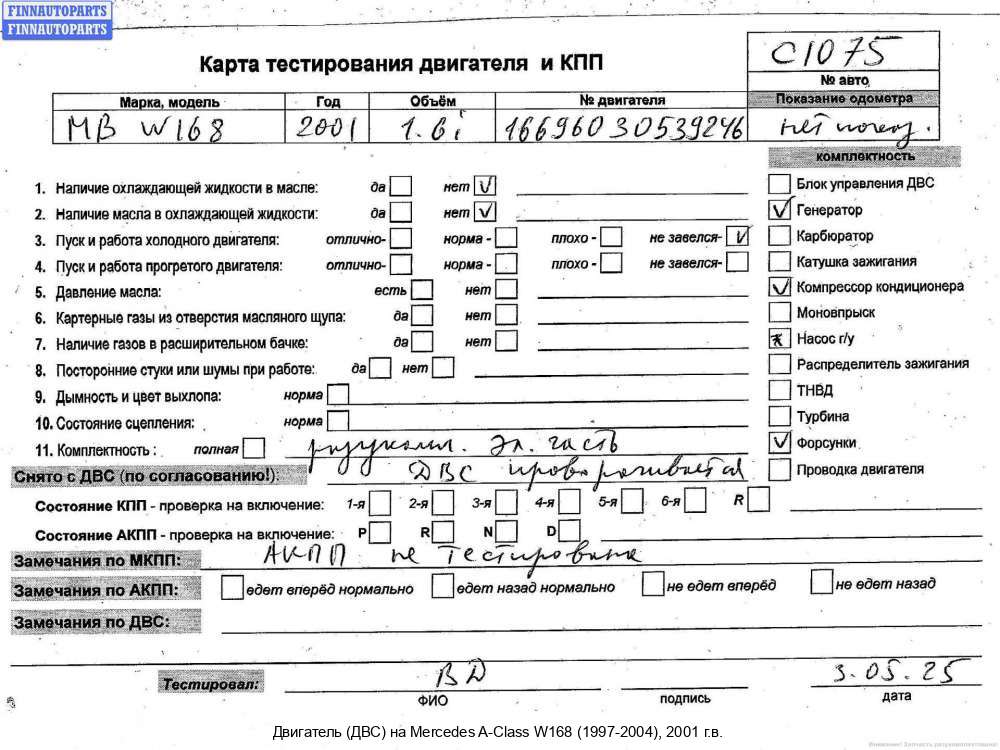 FINNAUTOPARTS
FINNAUTOPARTS
Карта тестирования двигателя и КПП
C1075
№ авто
Марка, модель Год Объём № двигателя Показание одометра
MB W168 2001 1.6i 16696030539246 нет показ.
комплектность
1. Наличие охлаждающей жидкости в масле: да нет
Блок управления ДВС
2. Наличие масла в охлаждающей жидкости: да нет
Генератор
3. Пуск и работа холодного двигателя: отлично- норма - плохо - не завелся-
Карбюратор
4. Пуск и работа прогретого двигателя: отлично- норма - плохо - не завелся-
Катушка зажигания
5. Давление масла: есть нет
Компрессор кондиционера
6. Картерные газы из отверстия масляного щупа: да нет
Моновпрыск
7. Наличие газов в расширительном бачке: да нет
Насос г/у
8. Посторонние стуки или шумы при работе: да нет
Распределитель зажигания
9. Дымность и цвет выхлопа: норма
ТНВД
10. Состояние сцепления: норма
Турбина
11. Комплектность : полная разукомпл. Эл. часть
Форсунки
Снято с ДВС (по согласованию!): ДВС проворачивается
Проводка двигателя
Состояние КПП - проверка на включение: 1-я 2-я 3-я 4-я 5-я 6-я R
Состояние АКПП - проверка на включение: P R N D
Замечания по МКПП: АКПП не тестирована
Замечания по АКПП: едет вперёд нормально едет назад нормально не едет вперёд не едет назад
Замечания по ДВС:
Тестировал: ВД 3.05.25
ФИО подпись дата
Двигатель (ДВС) на Mercedes A-Class W168 (1997-2004), 2001 г.в.